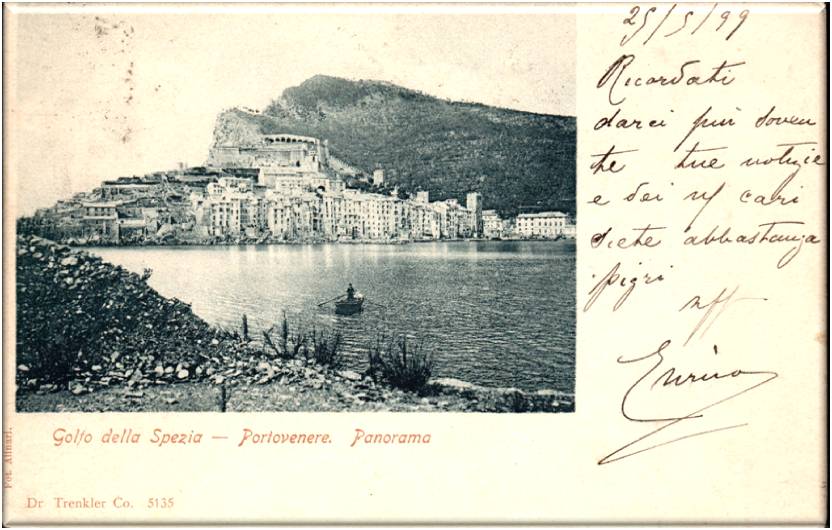 25/5/99
Ricordati
darci più soven
te tue notizie
e dei ns/ cari
siete abbastanza
pigri
aff
Enrico
Golfo della Spezia — Portovenere. Panorama
Fot. Alinari.
Dr Trenkler Co. 5135